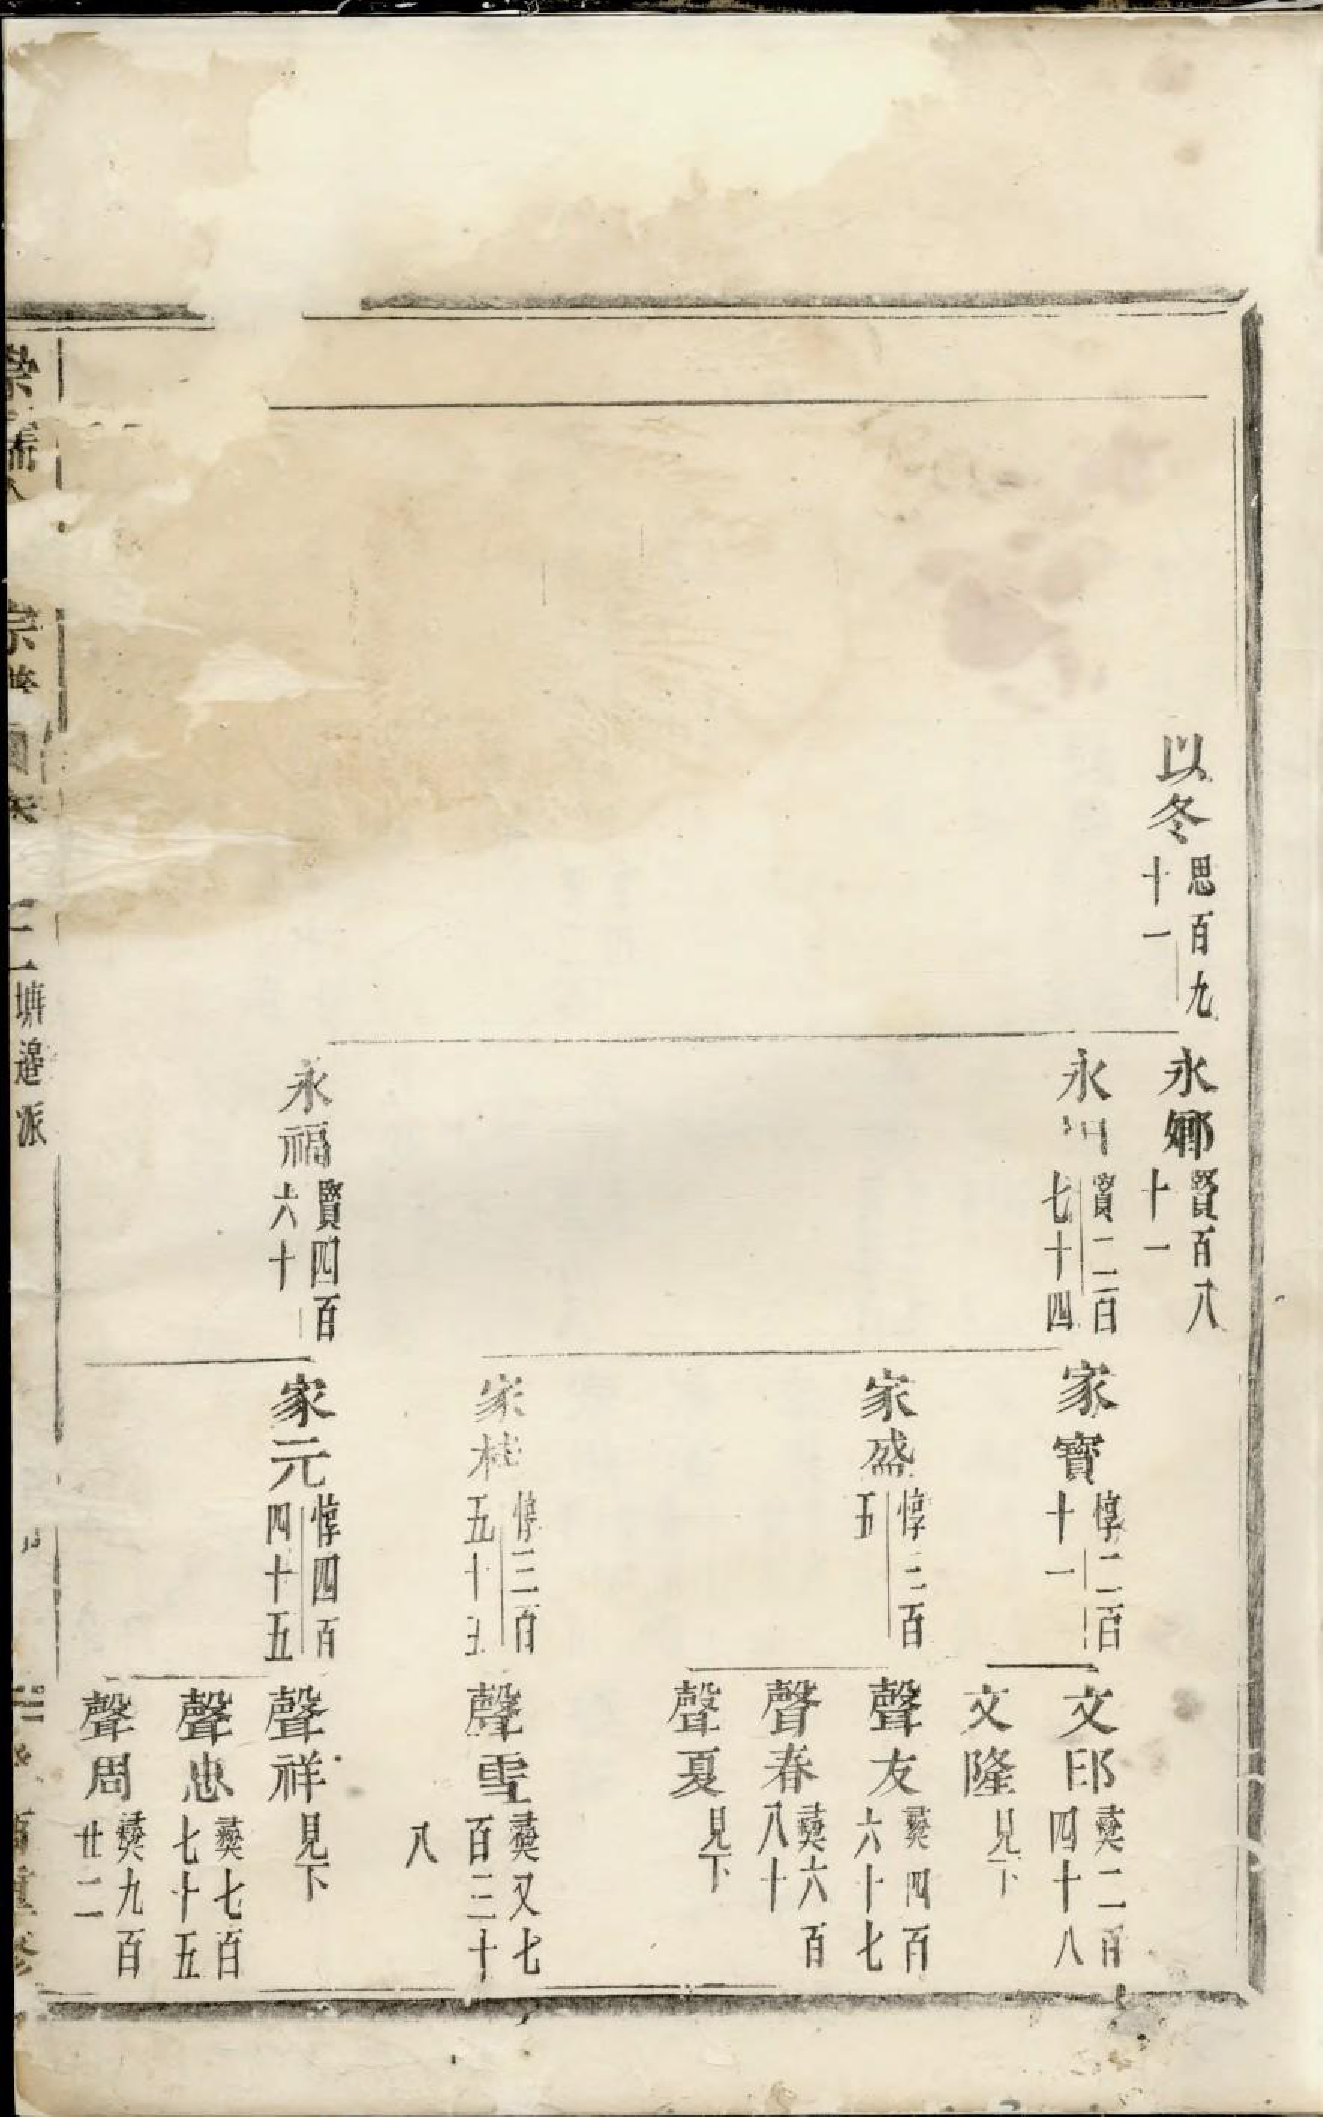 以冬 思百九十一
永鄉 賢百八十一
永 賢二百七十四
永福 賢四百六十
家寶 惇二百十一
家盛 惇三百五
家桂 惇三百五十五
家元 惇四百四十五
文邸 彛二百四十八
文隆 見下
聲友 彛四百六十七
聲春 彛六百八十
聲夏 見下
聲雪 彛又七百三十八
聲祥 見下
聲忠 彛七百七十五
聲周 彛九百廿二
塘邉派